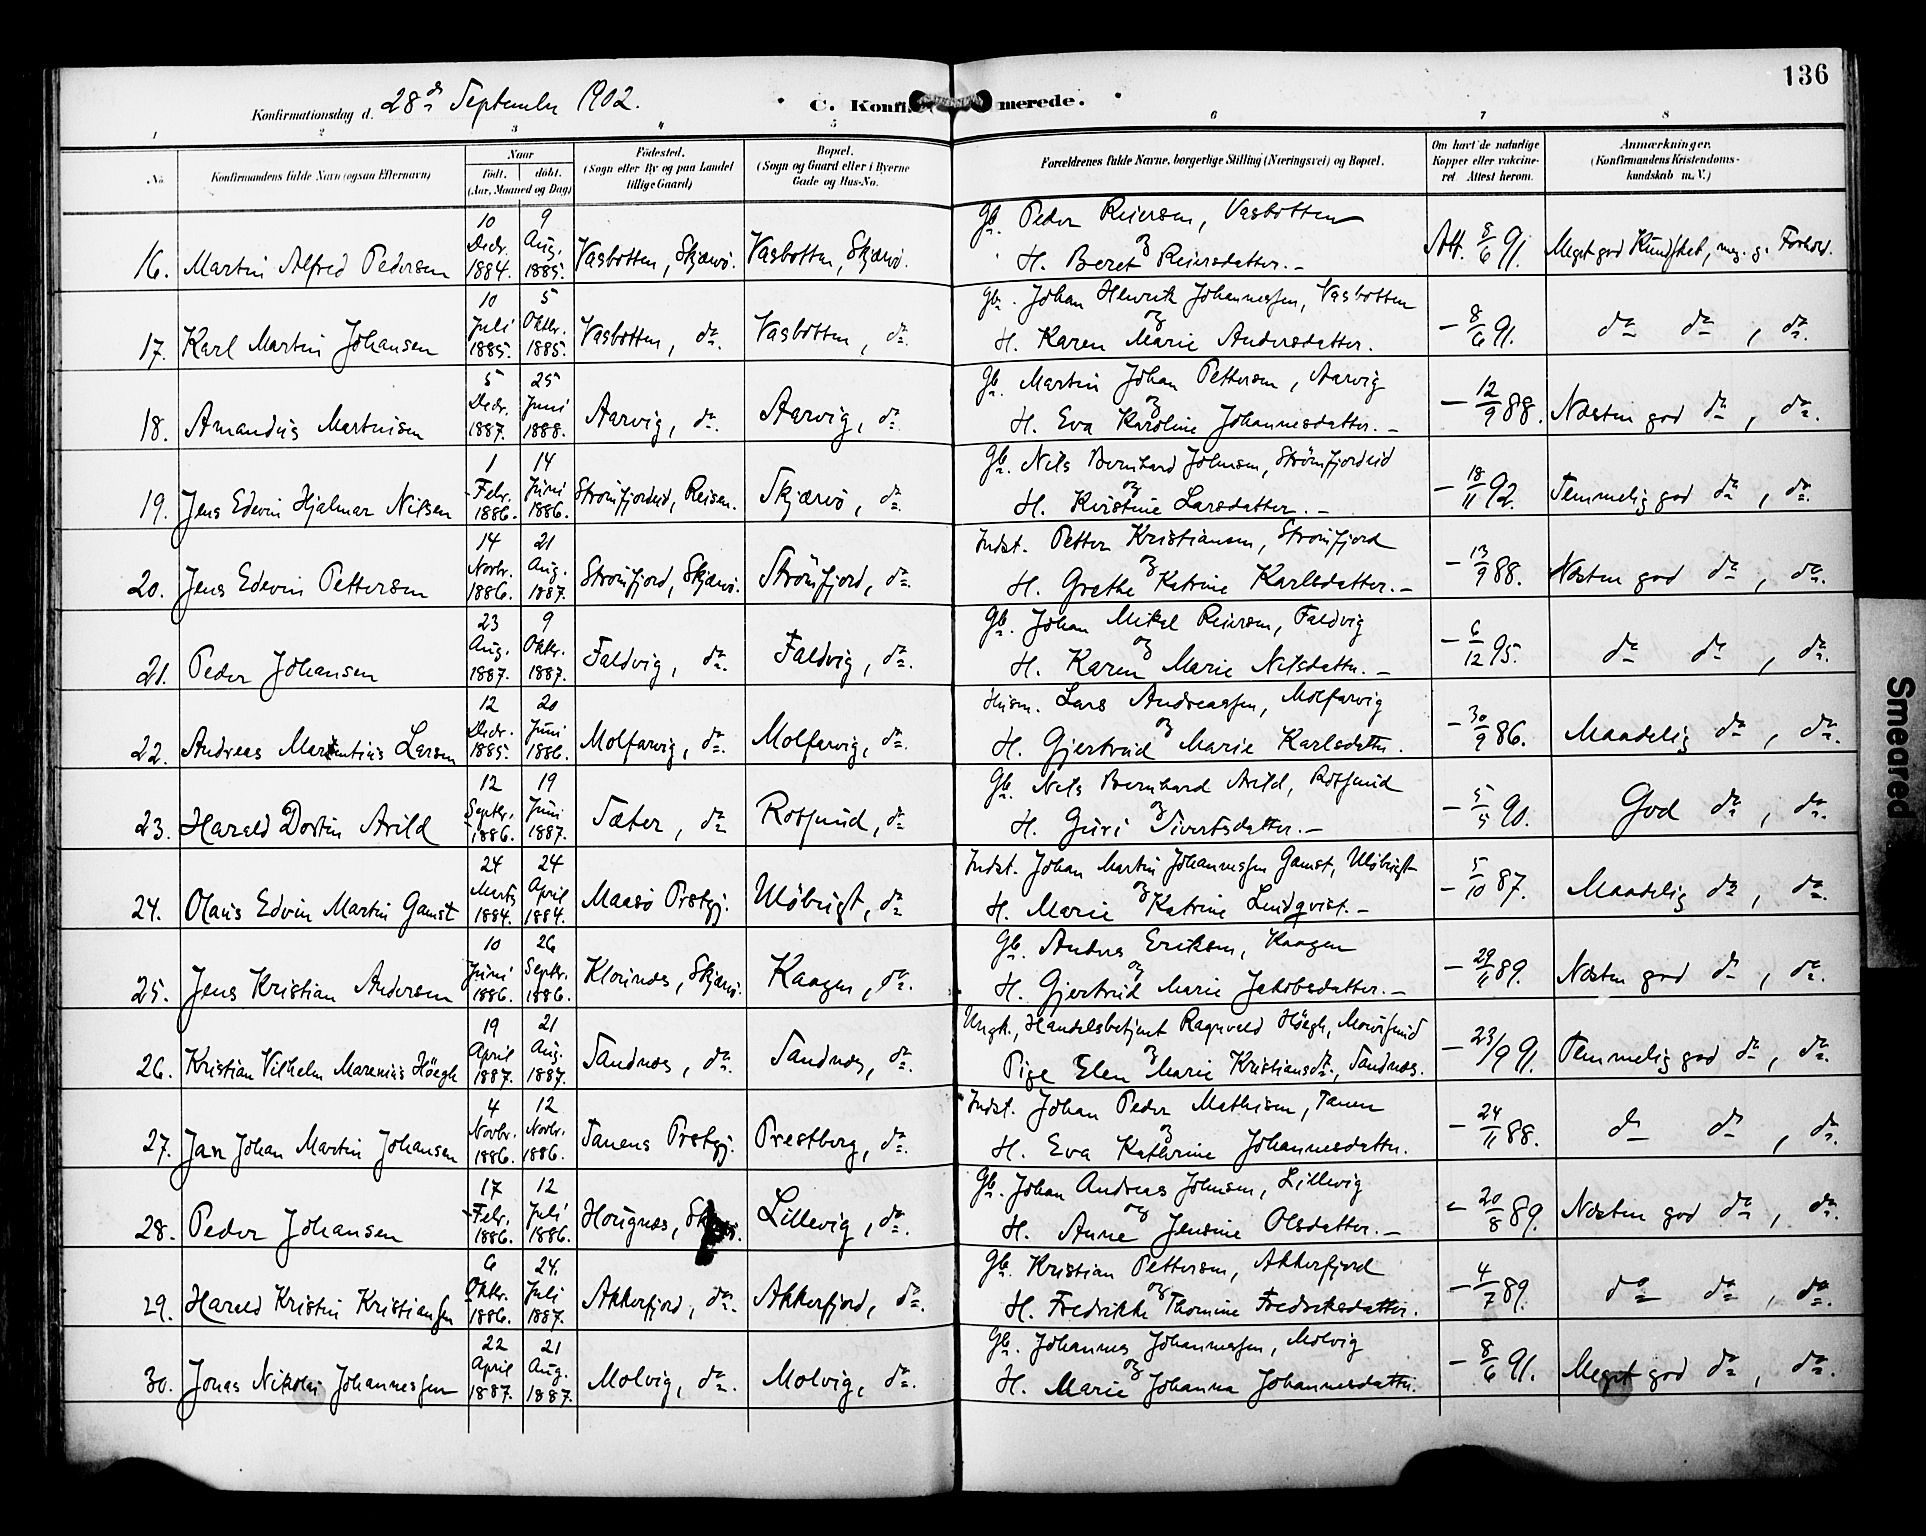 136
Konfirmationsdag d. 28de September 1902.
C. Konfirmerede.
1 2 3 4 5 6 7 8
No. Konfirmandens fulde Navn (ogsaa Efternavn) Naar født. døbt. (Aar, Maaned og Dag) Fødested. (Sogn eller By og paa Landet tillige Gaard) Bopæl. (Sogn og Gaard eller i Byerne Gade og Hus-No. Forældrenes fulde Navne, borgerlige Stilling (Næringsvei) og Bopæl. Om havt de naturlige Kopper eller vakcineret Attest herom. Anmærkninger. (Konfirmandens Kristendomskundskab m. V.)
16. Martin Alfred Pedersen 10 Decbr. 1884. 9 Aug. 1885. Vasbotten, Skjærvø. Vasbotten, Skjærvø. Gb. Peder Reiersen, Vasbotten og H. Beret Reiersdatter. Att. 8/6 91. Meget god Kundskab, meg. g. Forhold.
17. Karl Martin Johansen 10 Juli 1885. 5 Oktbr. 1885. Vasbotten, do. Vasbotten, do. Gb. Johan Henrik Johannessen, Vasbotten og H. Karen Marie Andersdatter. - 8/6 91. do do, do.
18. Amandus Martinsen 5 Decbr. 1887. 25 Juni 1888. Aarvig, do. Aarvig, do. Gb. Martin Johan Pettersen, Aarvig og H. Eva Karoline Johannesdatter. - 12/9 88. Næsten god do, do.
19. Jens Edvin Hjalmar Nilsen 1 Febr. 1886. 14 Juni 1886. Strømfjordeid, Reisen. Skjærvø, do. Gb. Nils Bernhard Johnsen, Strømfjordeid og H. Kirstine Larsdatter. - 18/11 92. Temmelig god do, do.
20. Jens Edvin Pettersen 14 Novbr. 1886. 21 Aug. 1887. Strømfjord, Skjærvø. Strømfjord, do. Indst. Petter Kristiansen, Strømfjord og H. Grethe Katrine Karlsdatter. - 13/9 88. Næsten god do, do.
21. Peder Johansen 23 Aug. 1887. 9 Oktbr. 1887. Faldvig, do. Faldvig, do. Gb. Johan Mikal Reiersen, Faldvig og H. Karen Marie Nilsdatter. - 6/12 95. do do, do.
22. Andreas Martentius Larsen 12 Decbr. 1885. 20 Juni 1886. Molfarvig, do. Molfarvig, do. Husm. Lars Andreassen, Molfarvig og H. Gjertrud Marie Karlsdatter. - 30/9 86. Maadelig do, do.
23. Harald Dortin Arild 12 Septbr. 1886. 19 Juni 1887. Sæter, do. Rotsund, do Gb. Nils Bernhard Arild, Rotsund og H. Guri Sivertsdatter. - 5/5 90. God do, do.
24. Olaus Edvin Martin Gamst 24 Marts 1884. 24 April 1884. Maasø Prstgj. Uløbugt, do Indst. Johan Martin Johannessen Gamst, Uløbugt og H. Marie Katrine Lindqvist. - 5/10 87. Maadelig do, do.
25. Jens Kristian Andersen 10 Juni 1886. 26 Septbr. 1886. Klovnæs, Skjærvø. Kaagen, do. Gb. Anders Eriksen, Kaagen og H. Gjertrud Marie Jakobsdatter. - 29/6 89. Næsten god do, do.
26. Kristian Vilhelm Marenius Høegh 19 April 1887. 21 Aug. 1887. Sandnæs, do. Sandnæs, do. Ungk., Handelsbetjent Ragnvald Høegh, Maursund og Pige Elen Marie Kristiansdt., Sandnæs. - 23/9 91. Temmelig god do, do.
27. Jan Johan Martin Johansen 4 Novbr. 1886. 12 Novbr. 1886. Tanens Prstgj. Prestberg, do. Indst. Johan Peder Mathisen, Tanen og H. Eva Kathrine Johannesdatter. - 24/11 88. do do, do.
28. Peder Johansen 17 Febr. 1886. 12 Juli 1886. Hougnæs, Skjærvø. Lillevig, do. Gb. Johan Andreas Johnsen, Lillevig og H. Anne Jensine Olsdatter. - 20/8 89. Næsten god do, do.
29. Harald Kristin Kristiansen 6 Oktbr. 1886. 24. Juli 1887. Akkerfjord, do. Akkerfjord, do. Gb. Kristian Pettersen, Akkerfjord og H. Fredrikke Thomine Fredriksdatter. - 4/7 89. do do, do.
30. Jonas Nikolai Johannessen 22 April 1887. 21 Aug. 1887. Molvig, do. Molvig, do. Gb. Johannes Johannessen, Molvig og H. Marie Johanna Johannesdatter. - 8/6 91. Meget god do, do.
Smeared